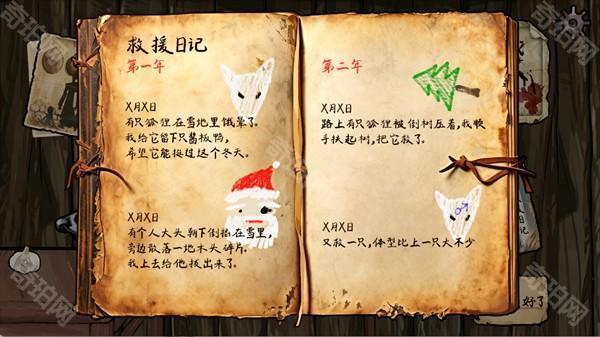 救援日记
第一年
X月X日
有只狐狸在雪地里饿晕了。
我给它留下只酱板鸭,
希望它能挺过这个冬天。
X月X日
有个人大头朝下倒插在雪里,
旁边散落一地木头碎片。
我上去给他拔出来了。
第二年
X月X日
路上有只狐狸被倒树压着,我顺
手扶起树,把它救了。
X月X日
又救一只,体型比上一只大不少
日记
好了
奇珀网
奇珀网
奇珀网
奇珀网
奇珀网